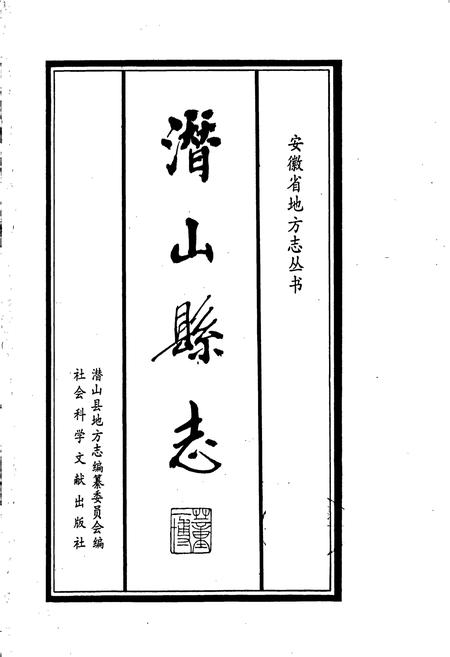 安徽省地方志丛书
潜山縣志
董一博
潜山县地方志编纂委员会编
社会科学文献出版社